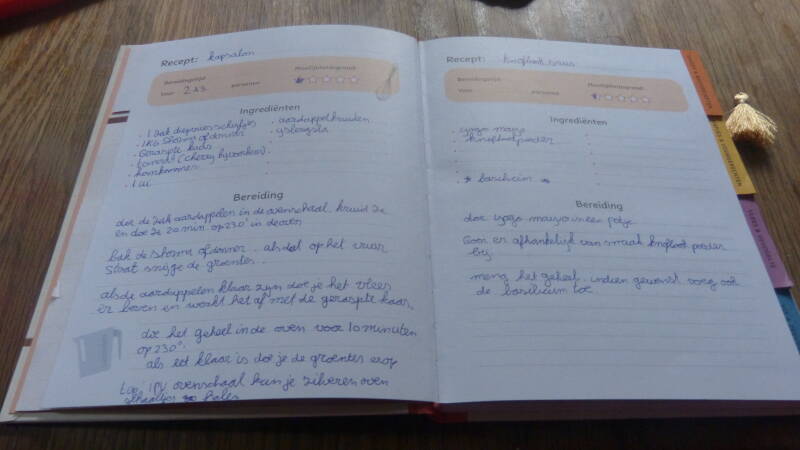 Recept: kapsalon
Bereidingstijd
Moeilijkheidsgraad
Voor 2 à 3 personen
Ingrediënten
1 zak diepvries schijfjes
1 KG Shoarma of döner
Geraspte kaas
tomaat (cherry bijvoorbeeld)
komkommer
1 ui
aardappelkruiden
ijsbergsla
Bereiding
doe de zak aardappelen in de ovenschaal. kruid ze
en doe ze 20 min op 230° in de oven
bak de shoarma of döner. als dat op het vuur
staat snijd je de groentes.
als de aardappelen klaar zijn doe je het vlees
er boven en maakt het af met de geraspte kaas
doe het geheel in de oven voor 10 minuten
op 230°.
als het klaar is doe je de groentes erop
IPV ovenschaal kun je zilveren oven
halen
Recept: knoflook saus
Bereidingstijd
Moeilijkheidsgraad
Voor personen
Ingrediënten
yogo mayo
knoflookpoeder
* basilicum *
Bereiding
doe yogo mayo in een potje
Voer er afhankelijk van smaak knoflook poeder
bij.
meng het geheel, indien gewenst voeg ook
de basilicum toe